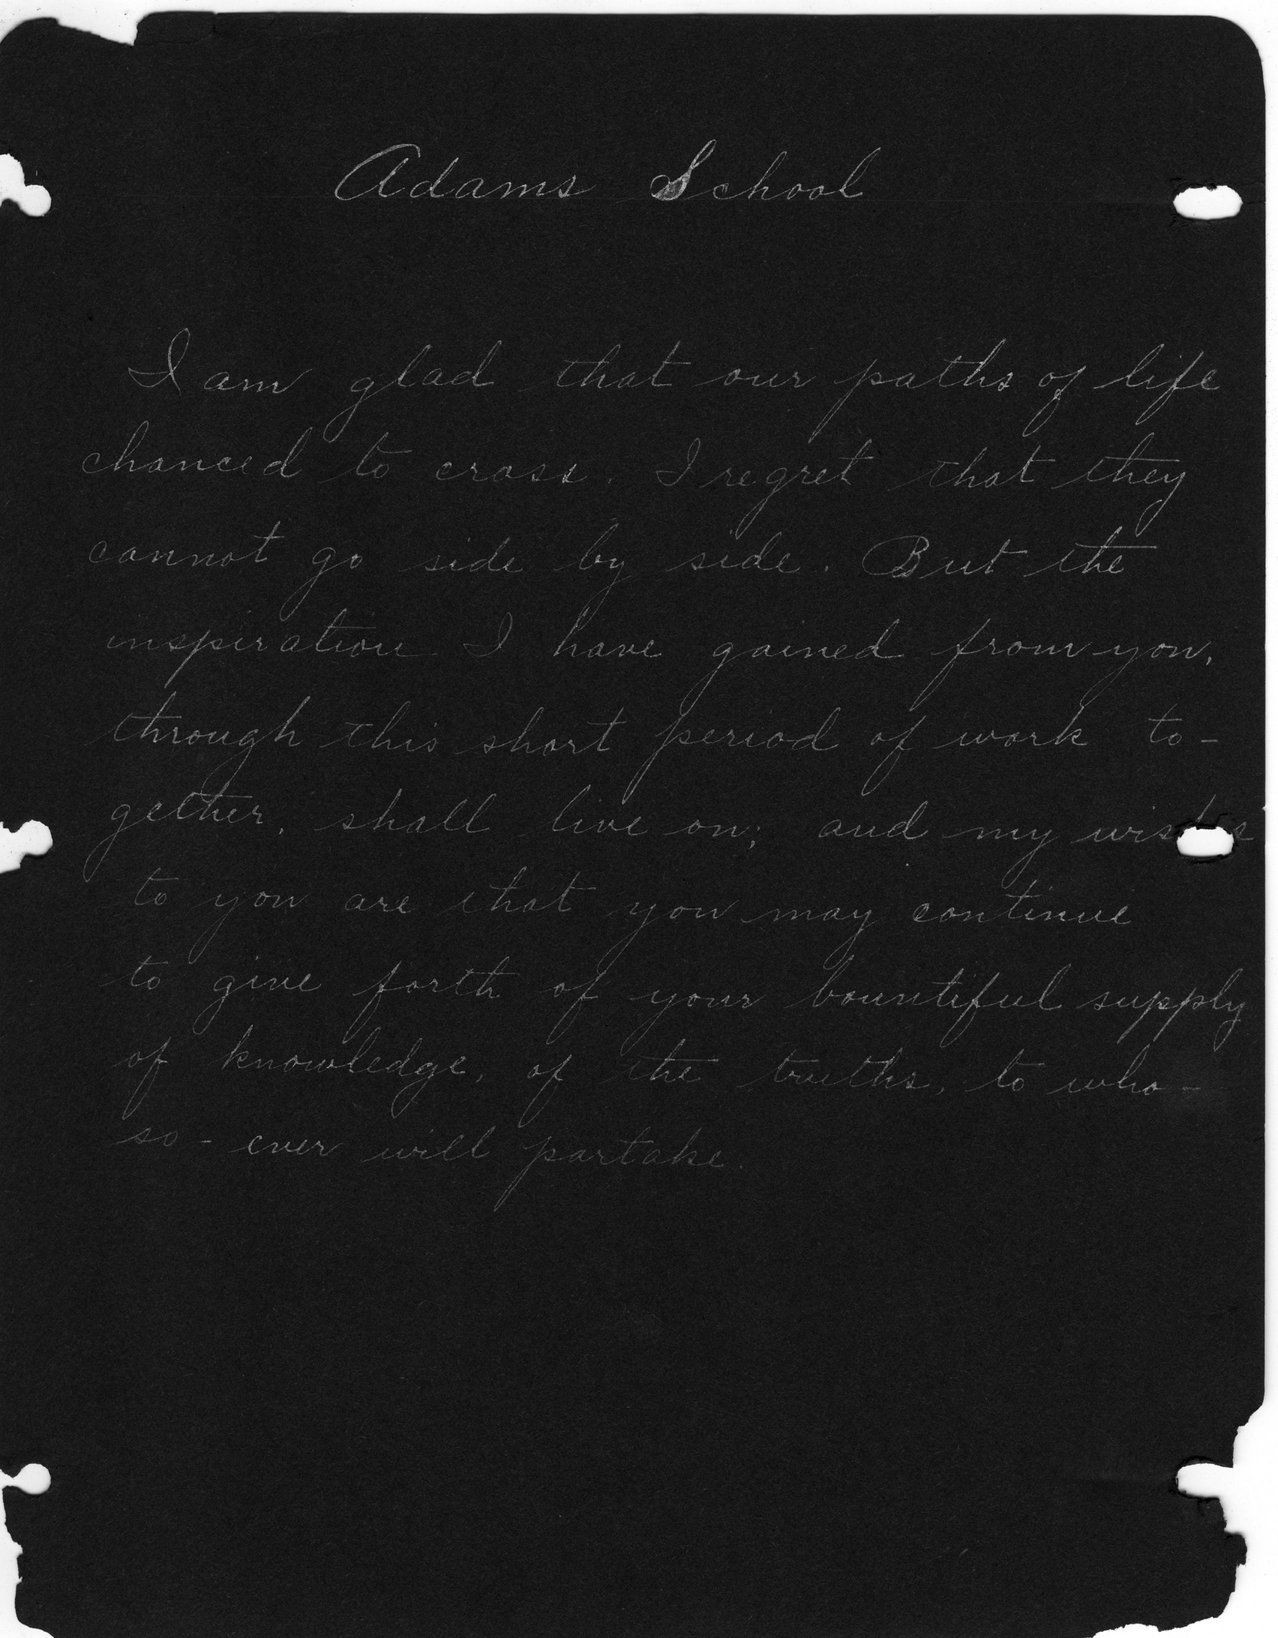 Adams School
I am glad that our paths of life
chanced to cross. I regret that they
cannot go side by side. But the
inspiration I have gained from you,
through this short period of work to-
gether, shall live on; and my
to you are that you may continue
to give forth of your bountiful supply
of knowledge, of the truths, to who-
so-ever will partake.